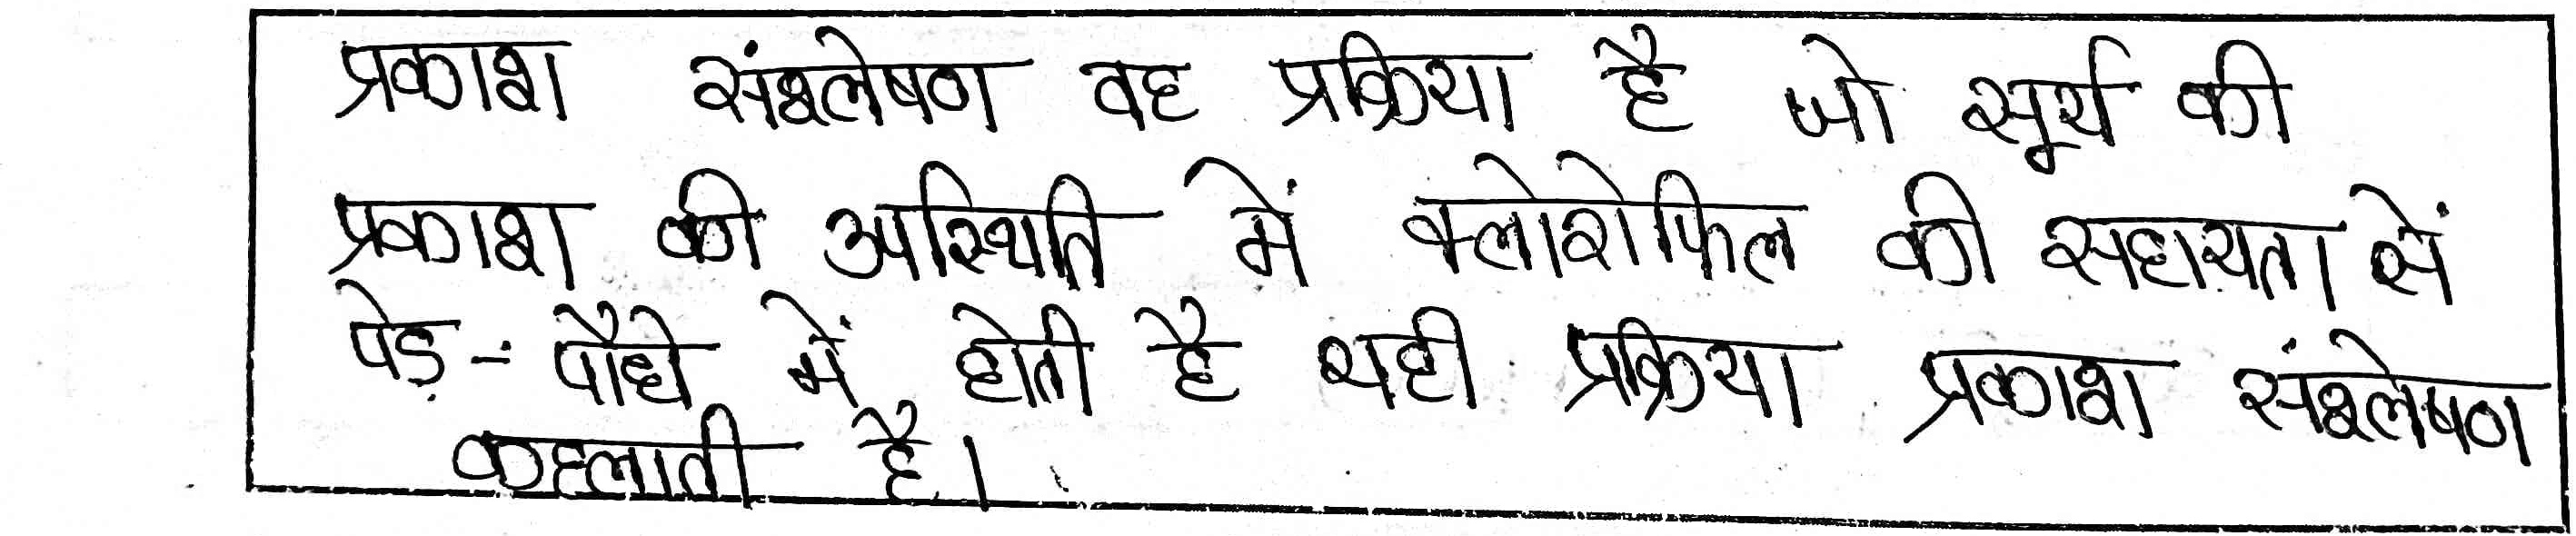 प्रकाश संश्लेषण वह प्रक्रिया है जो सूर्य की
प्रकाश की उपस्थिति में क्लोरोफिल की सहायता सें
पेड़ - पौधे में होती है यही प्रक्रिया प्रकाश संश्लेषण
कहलाती है।